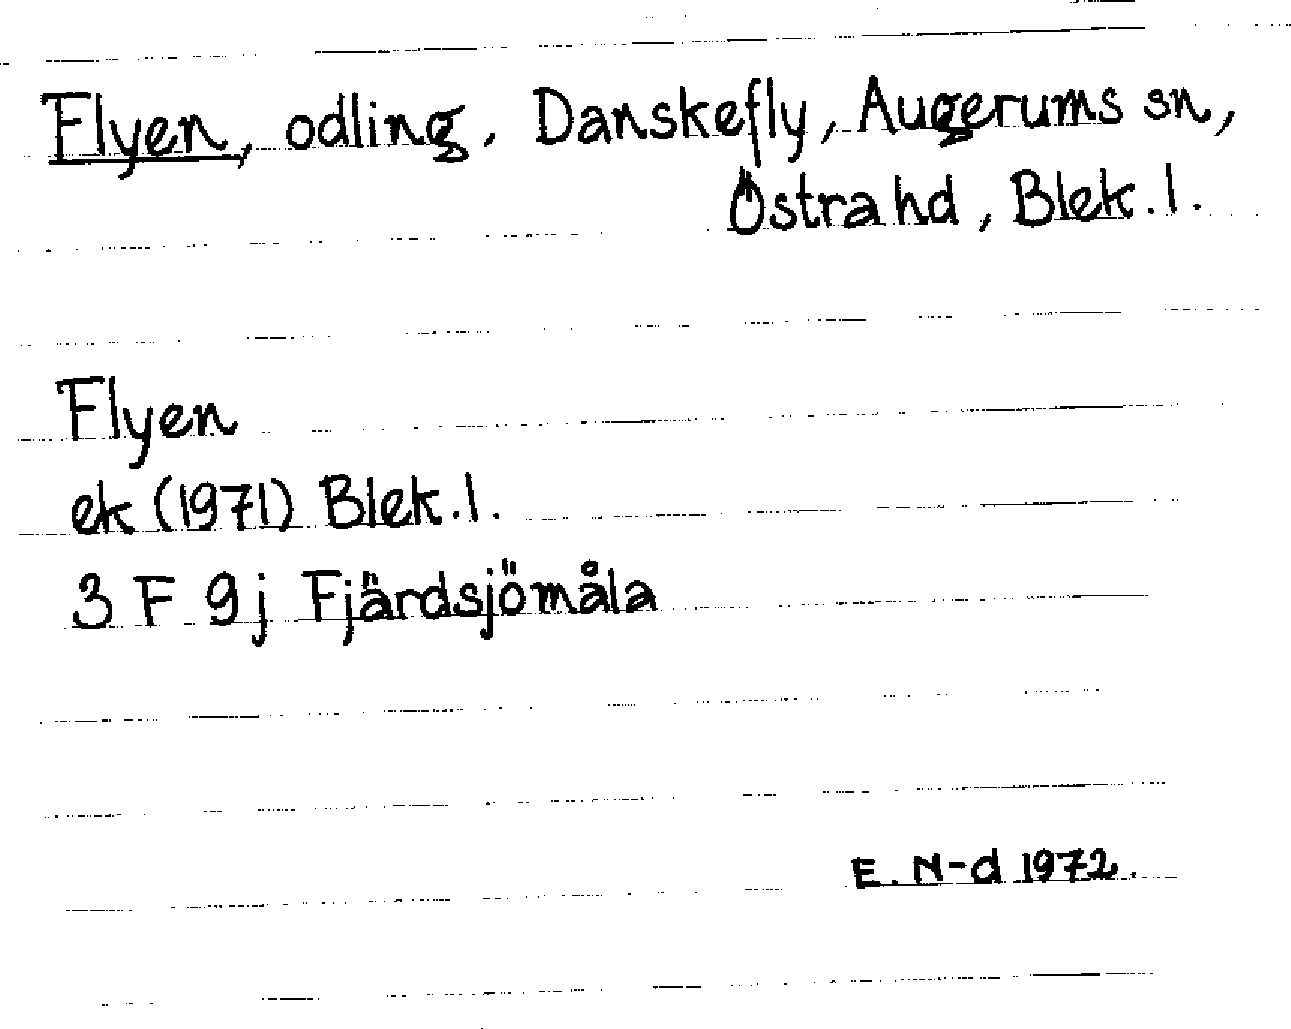 Flyen, odling, Danskefly, Augerums sn,
Östra hd, Blek. l.
Flyen
ek (1971) Blek. l.
3 F 9j Fjärdsjömåla
E. N-d 1972.